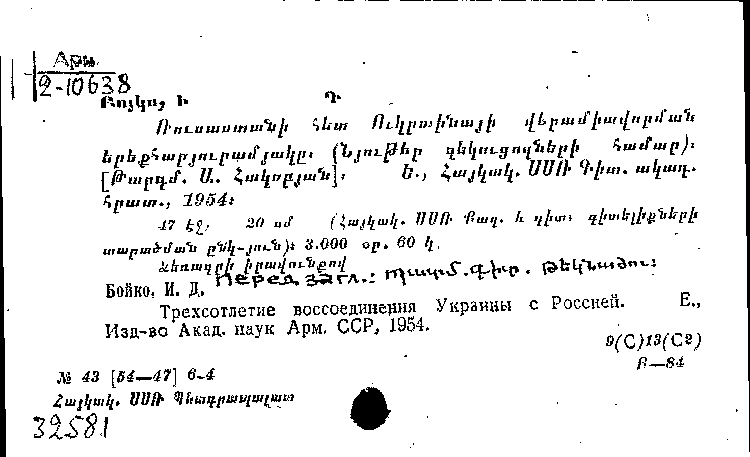 Арм.
2-10638
Բոյկո, Ի Դ
Ռուսաստանի հետ Ուկրաինայի վերամիավորման
երեքհարյուրամյակը։ (Նյութեր զեկուցողների համար)։
[Թարգմ. Ս. Հակոբյան]։ Ե., Հայկակ. ՍՍՌ Գիտ. ակադ.
հրատ., 1954։
47 էջ, 20 սմ (Հայկակ. ՍՍՌ Քաղ. և գիտ. գիտելիքների
տարածման ընկ-յուն)։ 3.000 օր. 60 կ.
Ձեռագրի իրավունքով
Бойко, И. Д. Перед загл.: պատմ. գիտ. թեկնածու։
Трехсотлетие воссоединения Украины с Россией. Е.,
Изд-во Акад. наук Арм. ССР, 1954.
9(С)13(С2)
Բ—84
№ 43 [54—47] 6-4
Հայկակ. ՍՍՌ Պետգրապալատ
32581